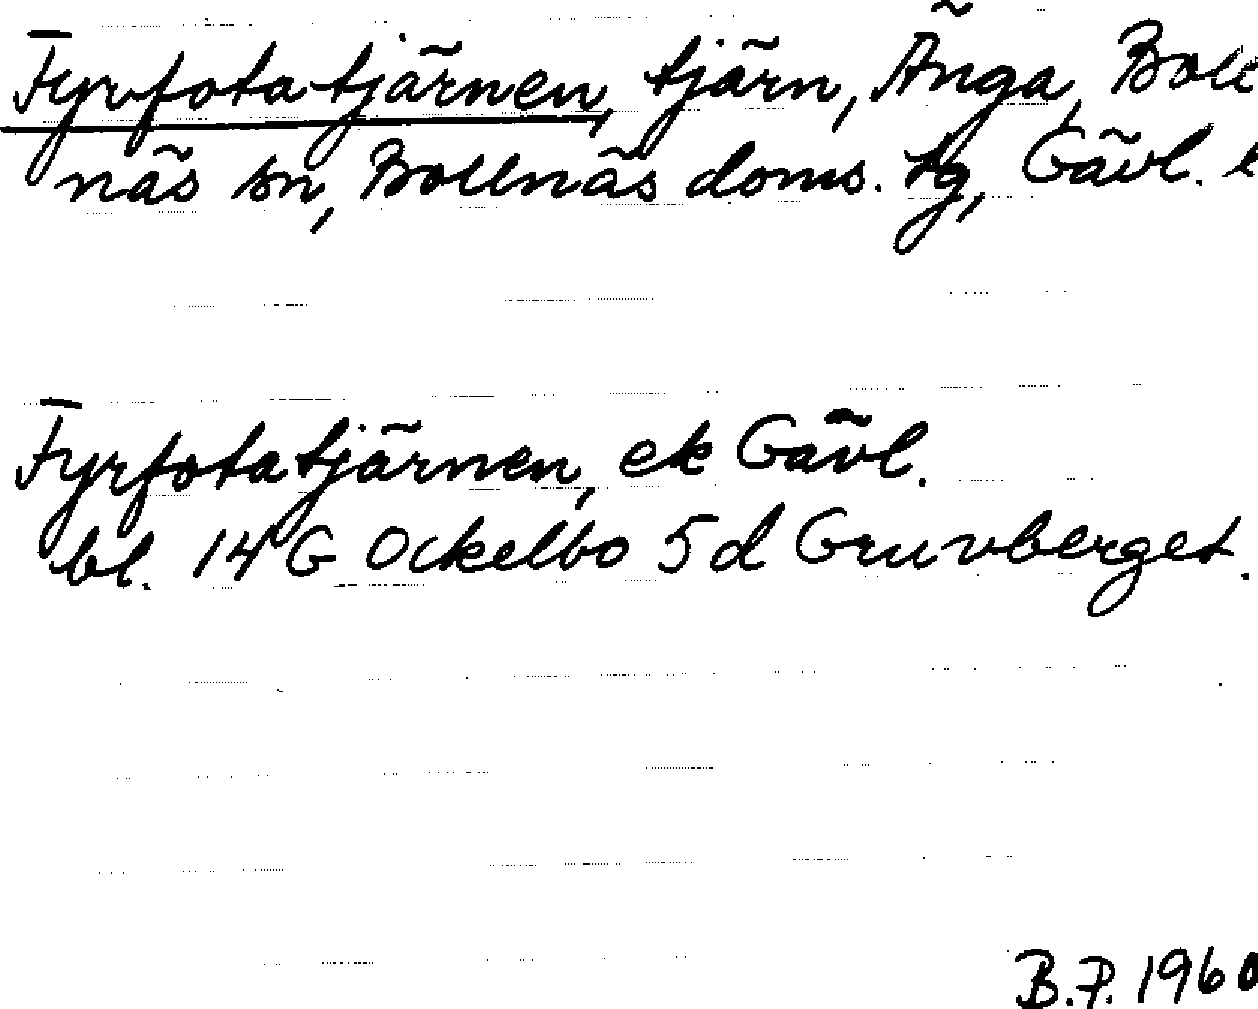 Fyrfotatjärnen, tjärn, Änga, Boll
näs sn, Bollnäs doms. tg, Gävl. l
Fyrfotatjärnen, ek Gävl.
bl. 14 G Ockelbo 5 d Gruvberget.
B.P. 1960